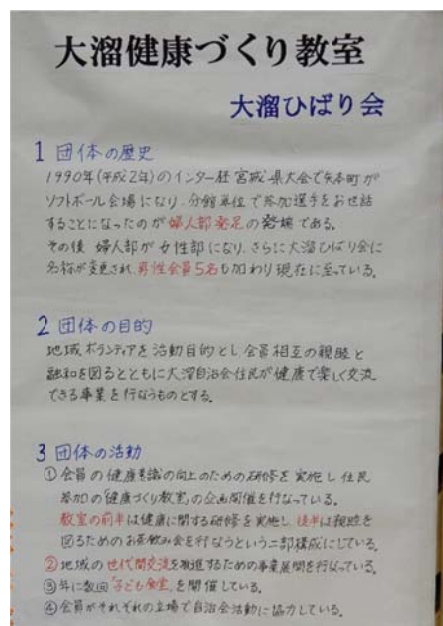 大溜健康づくり教室
大溜ひばり会
1 団体の歴史
1990年(平成2年)のインター杯宮城県大会で矢本町が
ソフトボール会場になり、分館単位で参加選手をお世話
することになったのが婦人部発足の発端である。
その後 婦人部が女性部になり、さらに大溜ひばり会に
名称が変更され、男性会員5名も加わり現在に至っている。
2 団体の目的
地域ボランティアを活動目的とし会員相互の親睦と
融和を図るとともに大溜自治会住民が健康で楽しく交流
できる事業を行なうものとする。
3 団体の活動
①会員の健康意識の向上のための研修を実施し住民
参加の「健康づくり教室」の企画開催を行なっている。
教室の前半は健康に関する研修を実施し、後半は親睦を
図るためのお茶飲み会を行なうという二部構成にしている。
②地域の世代間交流を推進するための事業展開を行なっている。
③年に数回「子ども食堂」を開催している。
④会員がそれぞれの立場で自治会活動に協力している。